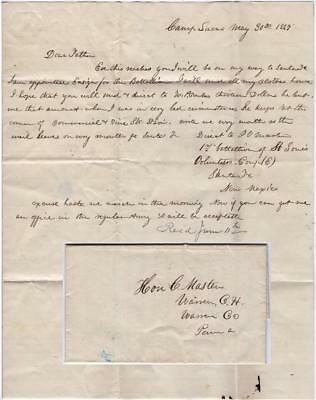 Camp Lucas May 30th 1847
Dear Father
Ere this reaches you I will be on my way to Santa Fe
I am appointed Ensign for this Battallion I will send all my clothes home
I hope that you will send & direct to Mr Borden thirteen Dollars he lent
me that amount when I was in very bad circumstances he keeps at the
corner of Commercial & Vine St Louis write me every month as the
mail leaves on every month for Santa Fe Direct to J O Master
1st Battallion of St Louis
Volunteers Comp (B)
Santa Fe
New Mexico
excuse haste we march in the morning Now if you can get me
an office in the regular Army it will be acceptable
Recd June 11th
Hon C Master
Warren C. H.
Warren Co
Penn a